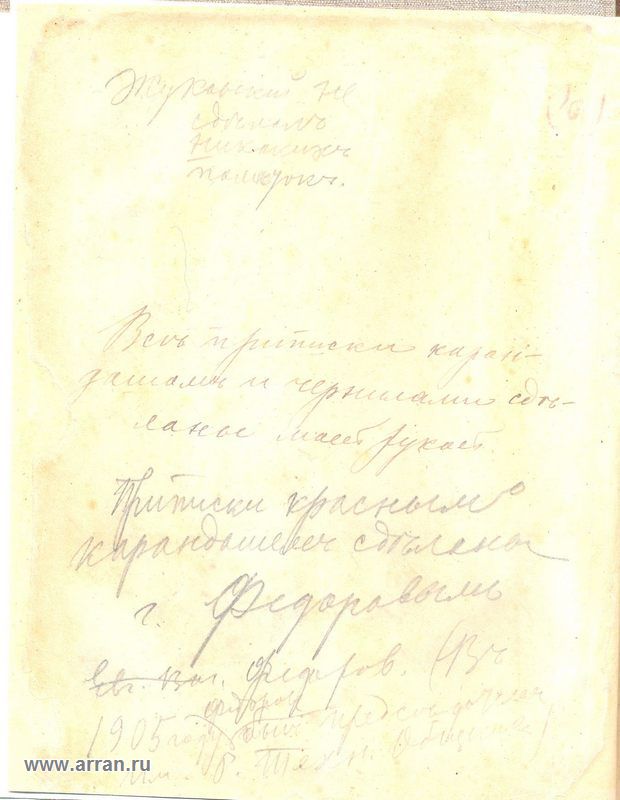 Жуковский не
сдѣлалъ
никакихъ
помѣтокъ.
(6)
Всѣ приписки каран-
дашомъ и чернилами сдѣ-
ланы моей рукой
Приписки краснымъ
карандашемъ сдѣланы
г. Федоровымъ
Евг. Федоров. (Въ
Федоров
1905 году былъ предсѣдателем
Им. Р. Техн. Общества)
www.arran.ru